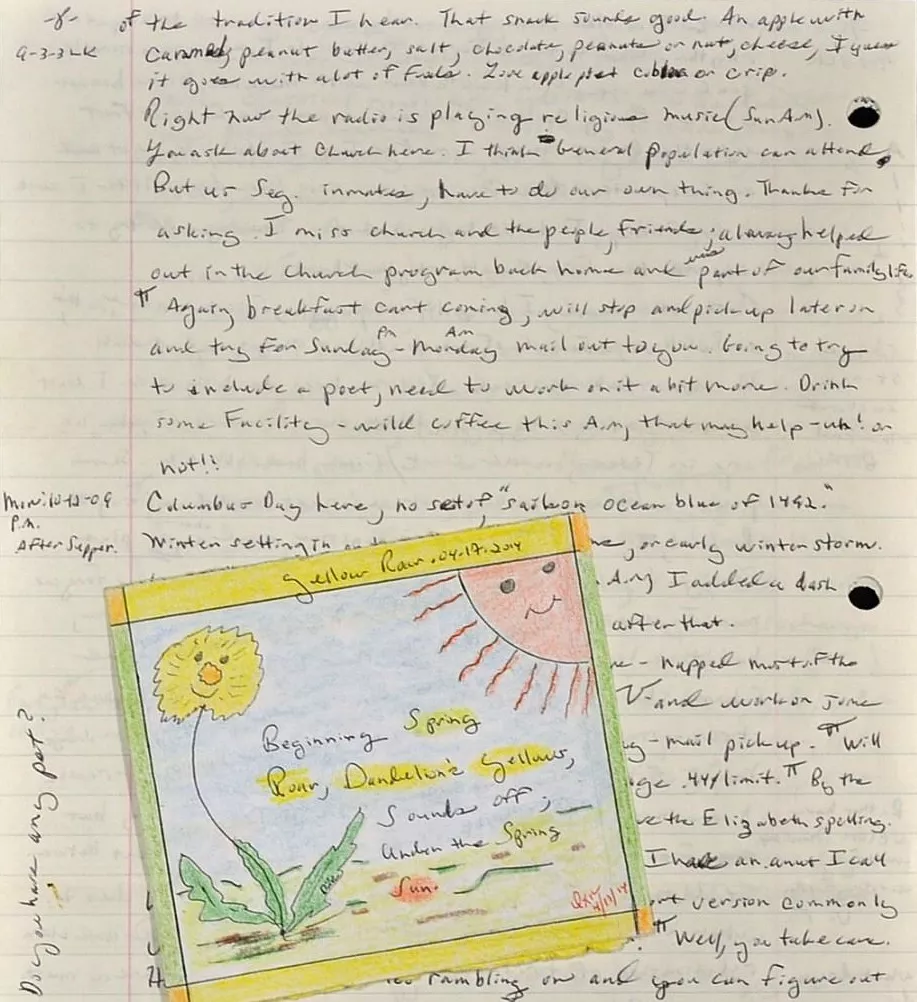 -8-
of the tradition I hear. That snack sounds good. An apple with
peanut butter, salt, chocolate, peanuts or nut, cheese, I guess
it goes with a lot of foods. Love apple or crip.
Right now the radio is playing religious music (Sun Am).
You ask about Church here. I think General population can attend,
But us Seg. inmates, have to do our own thing. Thanks for
asking. I miss church and the people, friends; always helped
out in the Church program back home and was part of our family life.
π Again, breakfast cart coming, will stop and pick up later on
and try for Sunday Pm - Monday Am mail out to you. Going to try
to include a poet, need to work on it a bit more. Drink
some Facility - mild coffee this Am, that may help - uh! or
not!!
Mon. 10-12-09
P.m.
After Supper.
Columbus Day here, no set of "sail on ocean blue of 1492."
Winter setting in or early winter storm.
Am) I added a dash
after that.
napped most of the
and work on some
mail pick up. π Will
.44/limit. π By the
the Elizabeth spelling.
I have an anut I call
version commonly
π Well, you take care.
rambling on and you can figure out
Do you have any pet?
Yellow Roar. 04.17.2014
Beginning Spring
Roar, Dandelion's yellows,
Sounds off;
under the Spring
Sun.